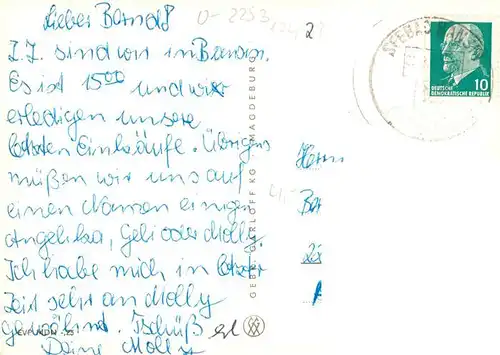 Lieber Bernd!
Z.Z. sind wir in Bansin.
Es ist 15⁰⁰ und wir
erledigen unsere
letzten Einkäufe. Übrigens
müßen wir uns auf
einen Namen einigen
Angelika, Geli oder Molly.
Ich habe mich in letzter
Zeit sehr an Molly
gewöhnt. Tschüß
Deine Molly
GEBR. GARLOFF KG MAGDEBURG
SEEBAD
10
DEUTSCHE
DEMOKRATISCHE REPUBLIK
Herrn